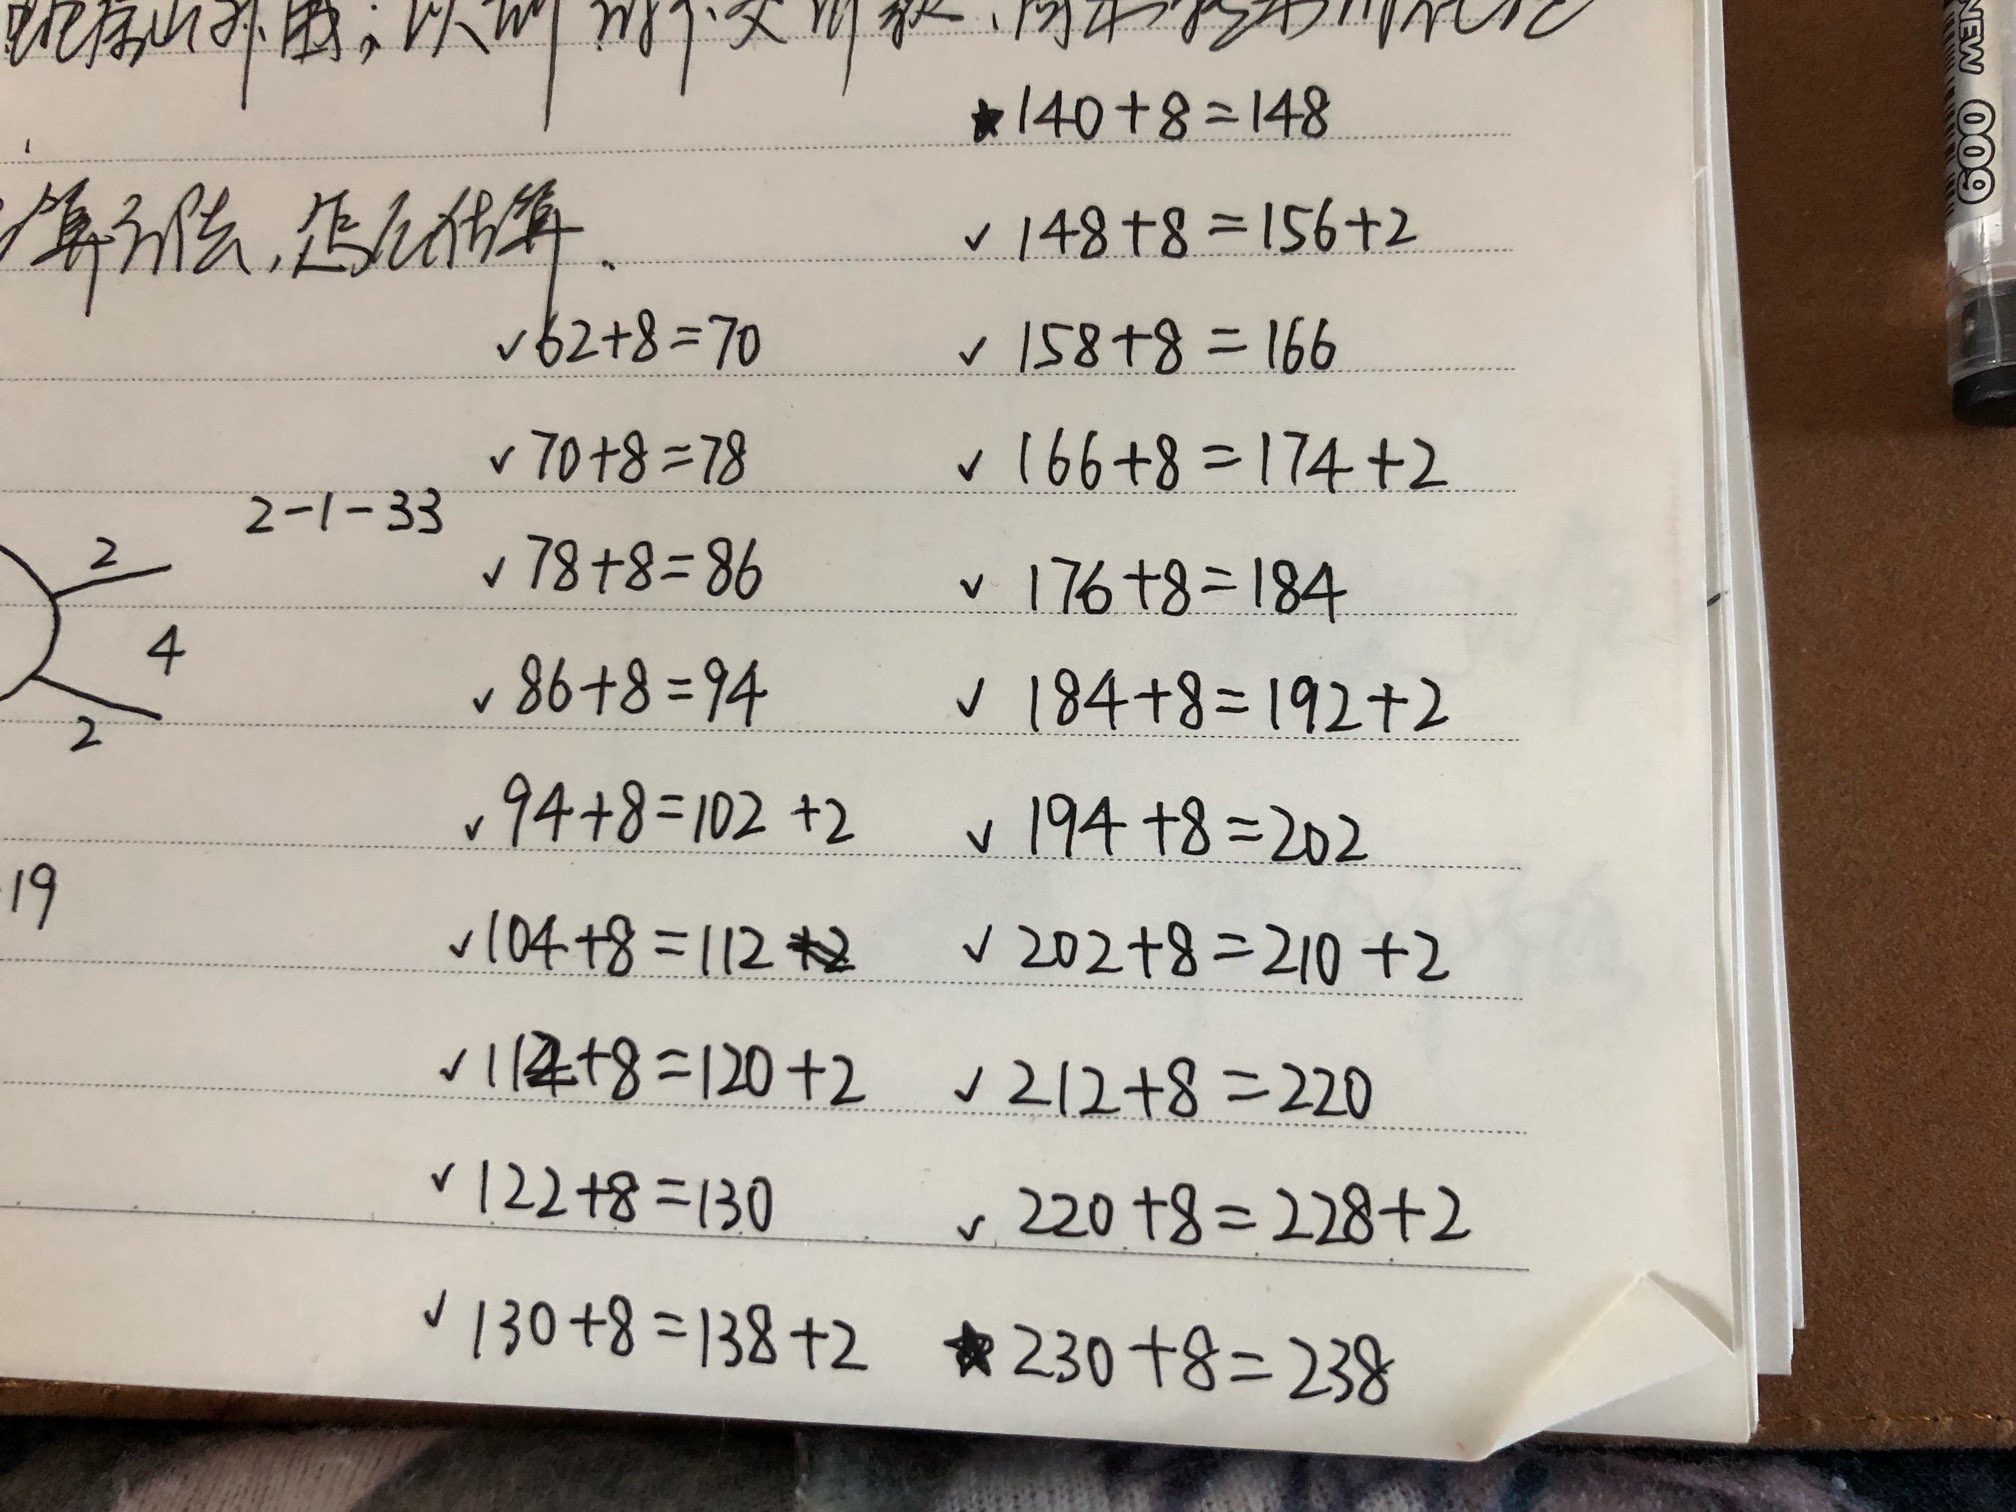 ★140+8=148
算引法,怎么估算.
✓148+8=156+2
✓62+8=70
✓158+8=166
✓70+8=78
✓166+8=174+2
2-1-33
✓78+8=86
✓176+8=184
2
4
2
✓86+8=94
✓184+8=192+2
✓94+8=102+2
✓194+8=202
19
✓104+8=112
✓202+8=210+2
✓112+8=120+2
✓212+8=220
✓122+8=130
✓220+8=228+2
✓130+8=138+2
★230+8=238
NEW 009